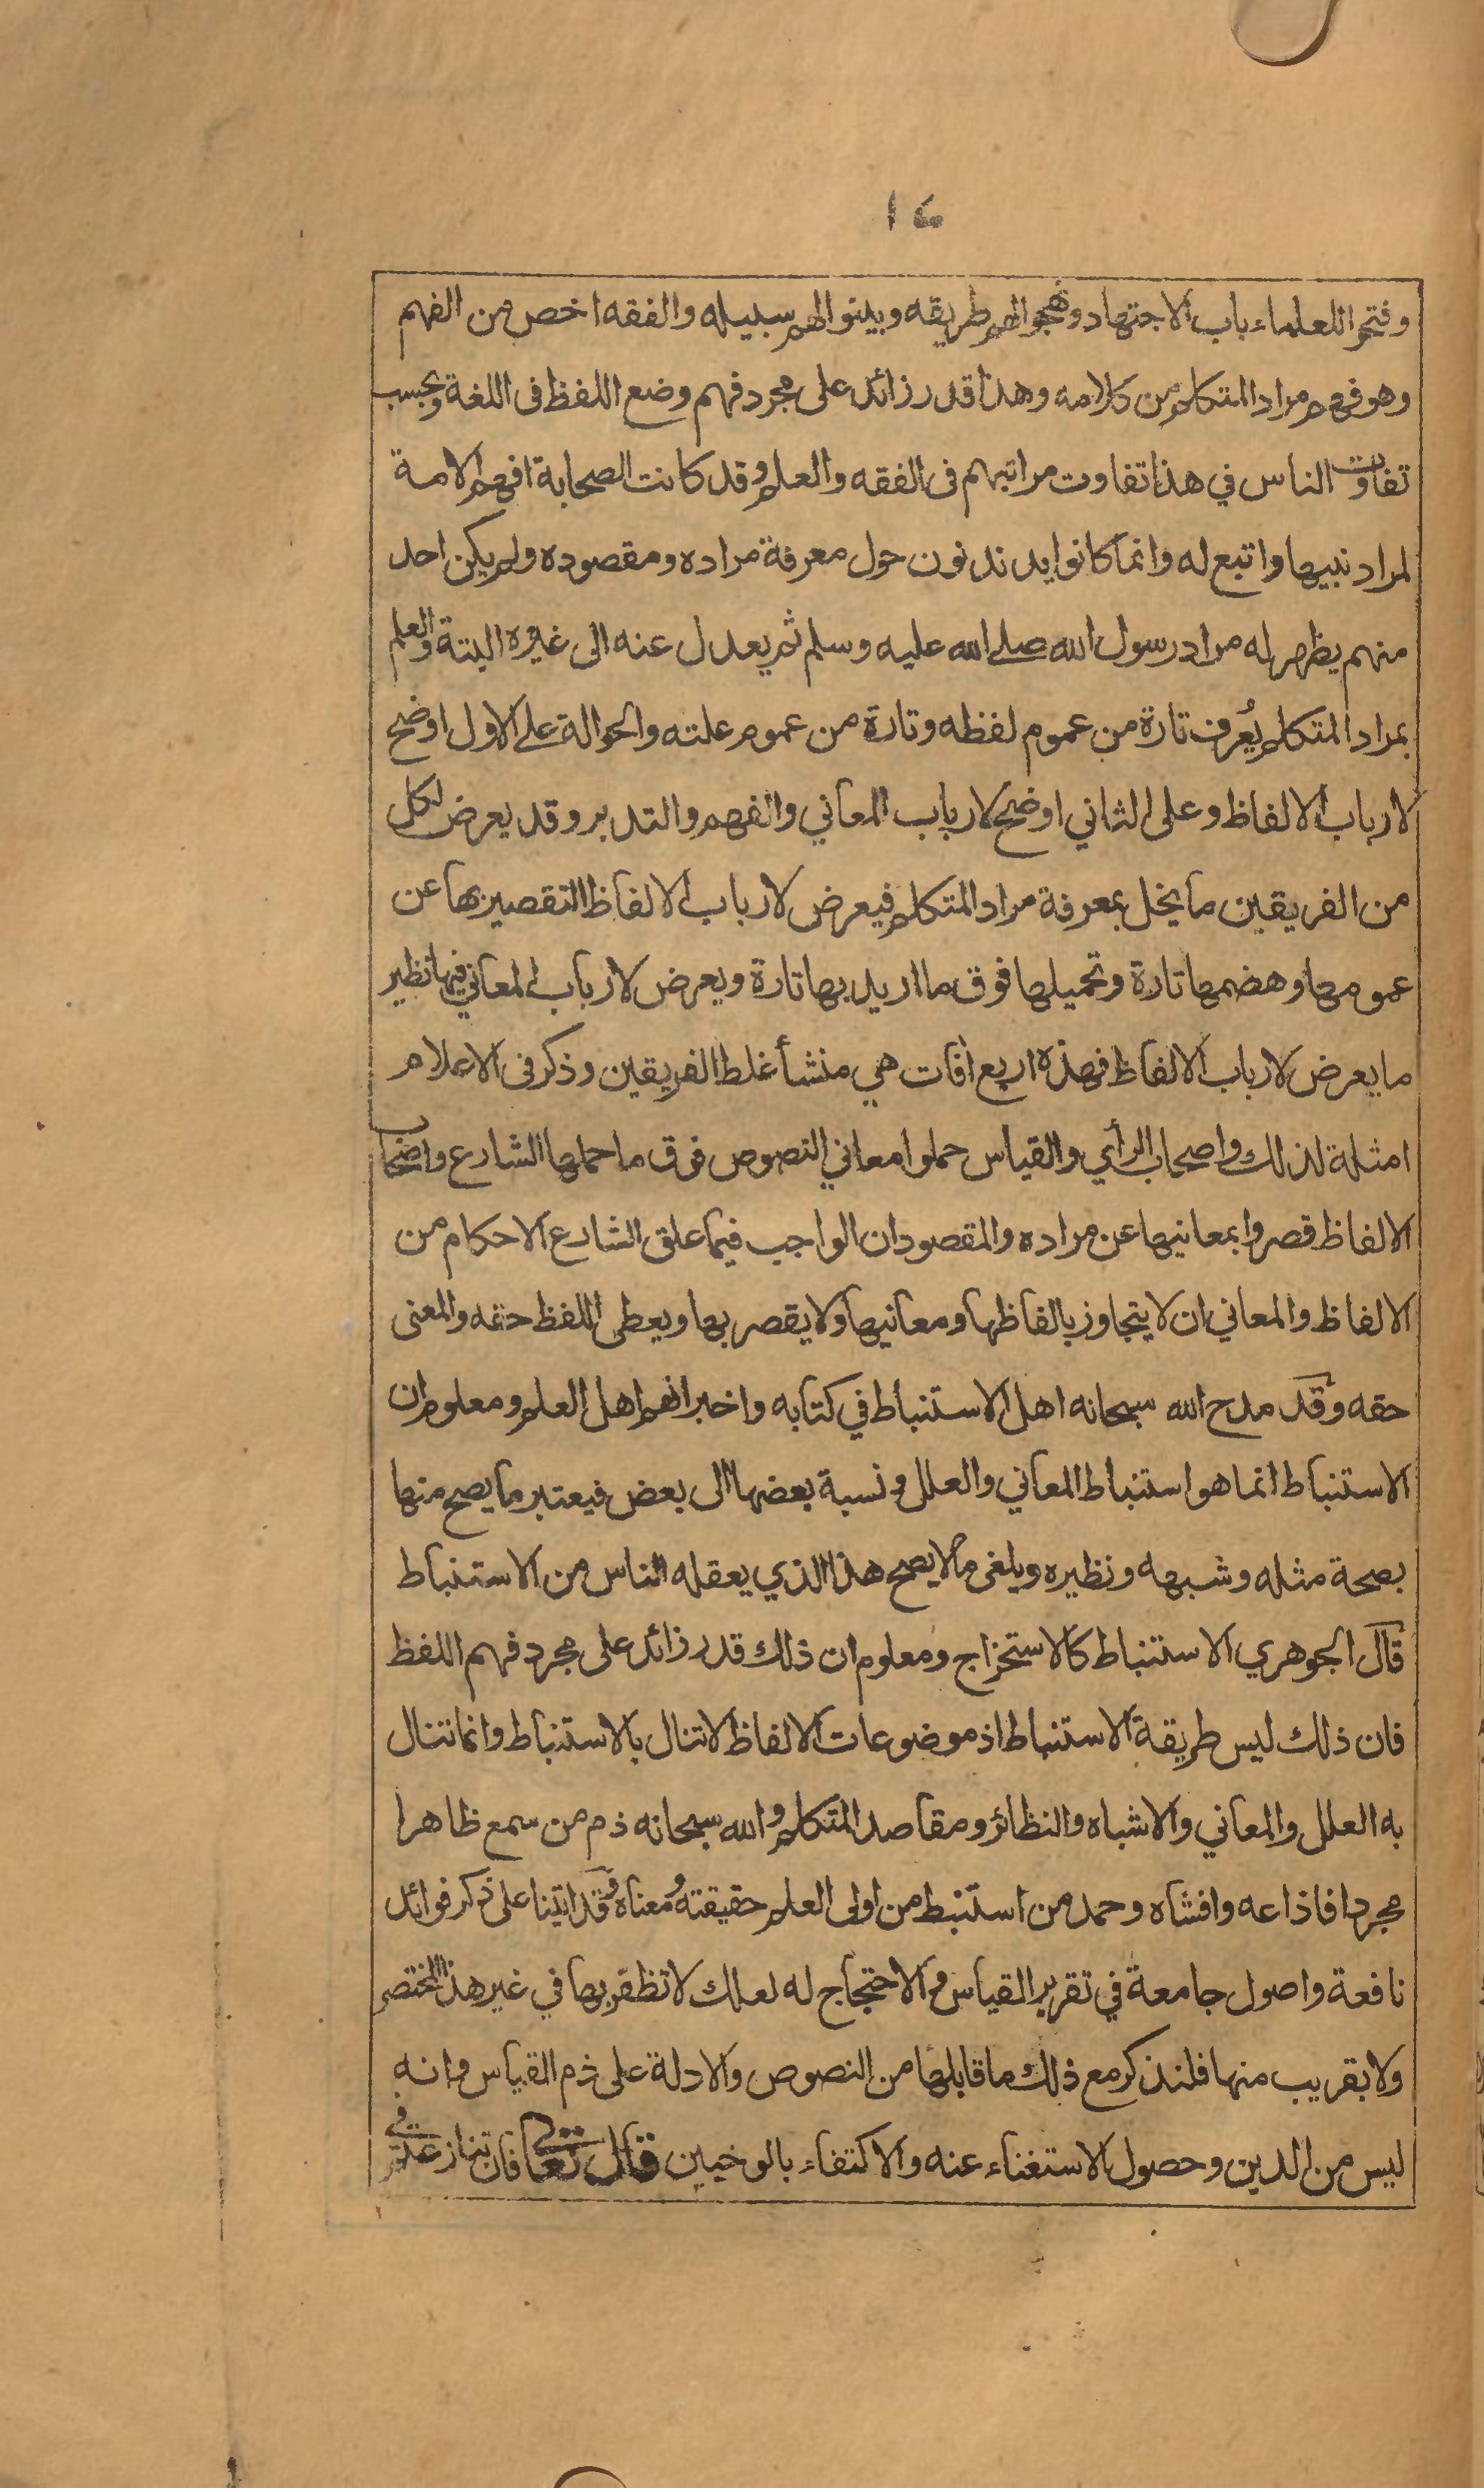 ١٤
وفتحوا للعلماء باب الاجتهاد ونهجوا لهم طريقه وبينوا لهم سبيله والفقه اخص من الفهم
وهو فهم مراد المتكلم من كلامه وهذا قدر زائد على مجرد فهم وضع اللفظ فى اللغة وبحسب
تفاوت الناس في هذا تفاوت مراتبهم فى الفقه والعلم وقد كانت الصحابة افهم الامة
لمراد نبيها واتبع له وانما كانوا يدندنون حول معرفة مراده ومقصوده ولم يكن احد
منهم يظهر له مراد رسول الله صلے الله عليه وسلم ثم يعدل عنه الى غيره البتة والعلم
بمراد المتكلم يُعرف تارة من عموم لفظه وتارة من عموم علته والحوالة علے الاول اوضح
لارباب الالفاظ وعلى الثاني اوضح لارباب المعاني والفهم والتدبر وقد يعرض لكل
من الفريقين ما يخل بمعرفة مراد المتكلم فيعرض لارباب الالفاظ التقصير بها عن
عمومها وهضمها تارة وتحميلها فوق ما اريد بها تارة ويعرض لارباب المعاني فيها نظير
ما يعرض لارباب الالفاظ فهذه اربع اٰفات هي منشأ غلط الفريقين وذكر فى الاعلام
امثلة لذلك واصحاب الرأي والقياس حملوا معاني النصوص فوق ما حملها الشارع واصحاب
الالفاظ قصروا بمعانيها عن مراده والمقصود ان الواجب فيما علق الشارع الاحكام من
الالفاظ والمعاني ان لا يتجاوز بالفاظها ومعانيها ولا يقصر بها ويعطى اللفظ حقه والمعنى
حقه وقد مدح الله سبحانه اهل الاستنباط في كتابه واخبر انهم اهل العلم ومعلوم ان
الاستنباط انما هو استنباط المعاني والعلل ونسبة بعضها الى بعض فيعتبر ما يصح منها
بصحة مثله وشبهه ونظيره ويلغى ما لا يصح هذا الذي يعقله الناس من الاستنباط
قال الجوهري الاستنباط كالاستخراج ومعلوم ان ذلك قدر زائد على مجرد فهم اللفظ
فان ذلك ليس طريقة الاستنباط اذ موضوعات الالفاظ لا تنال بالاستنباط وانما تنال
به العلل والمعاني والاشباه والنظائر ومقاصد المتكلم والله سبحانه ذم من سمع ظاهرا
مجردا فاذاعه وافشاه وحمد من استنبط من اولى العلم حقيقته ومعناه وقد اتينا على ذكر فوائد
نافعة واصول جامعة في تقرير القياس والاحتجاج له لعلك لا تظفر بها في غير هذا المختصر
ولا بقريب منها فلنذكر مع ذلك ما قابلها من النصوص والادلة على ذم القياس وانه
ليس من الدين وحصول الاستغناء عنه والاكتفاء بالوحيين قال تعالى فان تنازعتم في